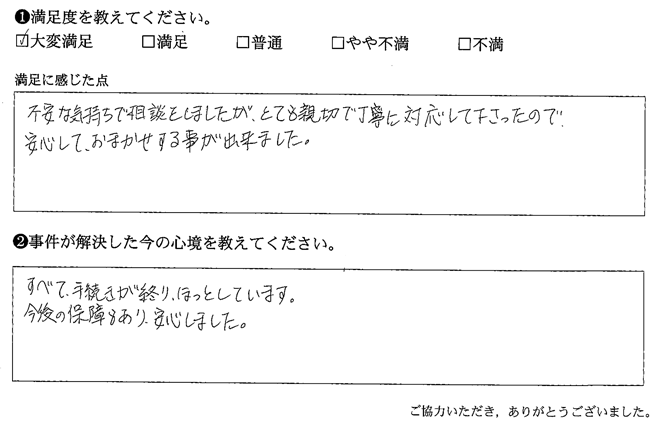 ❶満足度を教えてください。
☑大変満足 □満足 □普通 □やや不満 □不満
満足に感じた点
不安な気持ちで相談をしましたが、とても親切で丁寧に対応して下さったので、
安心して、おまかせする事が出来ました。
❷事件が解決した今の心境を教えてください。
すべて、手続きが終り、ほっとしています。
今後の保障もあり、安心しました。
ご協力いただき、ありがとうございました。